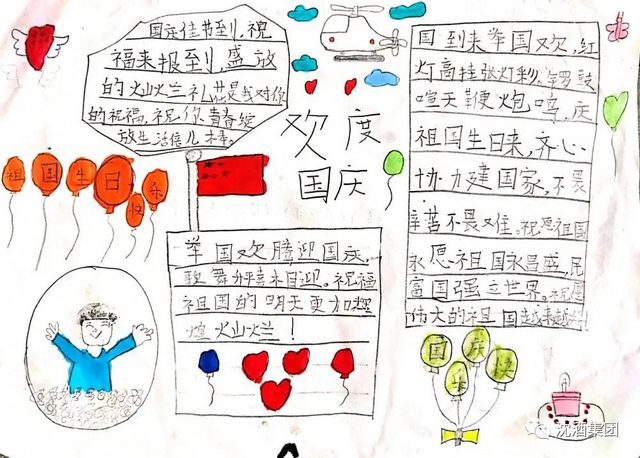 国庆佳节到,祝
福来报到,盛放
的灿烂礼花是我对你
的祝福,祝你青春绽
放生活倍儿棒。
欢度
国庆
国到来举国欢,红
灯高挂张灯彩,锣鼓
喧天鞭炮鸣,庆
祖国生日来,齐心
协力建国家,不畏
辛苦不畏难。祝愿祖国
永愿祖国永昌盛,民
富国强立世界。祝愿
伟大的祖国越来越
祖国生日快乐
举国欢腾迎国庆,
歌舞升平喜相迎。祝福
祖国的明天更加辉
煌灿烂!
国庆快乐
沈酒集团